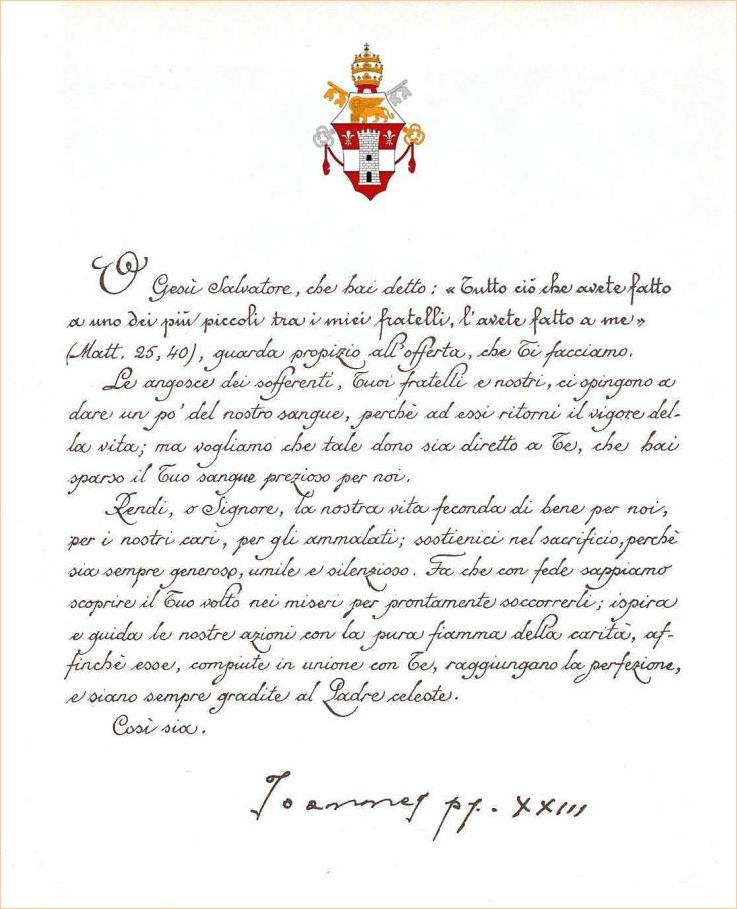 O Gesù Salvatore, che hai detto: «Tutto ciò che avete fatto
a uno dei più piccoli tra i miei fratelli, l'avete fatto a me»
(Matt. 25, 40), guarda propizio all'offerta, che Ti facciamo.
Le angosce dei sofferenti, Tuoi fratelli e nostri, ci spingono a
dare un po' del nostro sangue, perchè ad essi ritorni il vigore del-
la vita; ma vogliamo che tale dono sia diretto a Te, che hai
sparso il Tuo sangue prezioso per noi.
Rendi, o Signore, la nostra vita feconda di bene per noi,
per i nostri cari, per gli ammalati; sostienici nel sacrificio, perchè
sia sempre generoso, umile e silenzioso. Fa che con fede sappiamo
scoprire il Tuo volto nei miseri per prontamente soccorrerli; ispira
e guida le nostre azioni con la pura fiamma della carità, af-
finchè esse, compiute in unione con Te, raggiungano la perfezione,
e siano sempre gradite al Padre celeste.
Così sia.
Joannes pp. XXIII